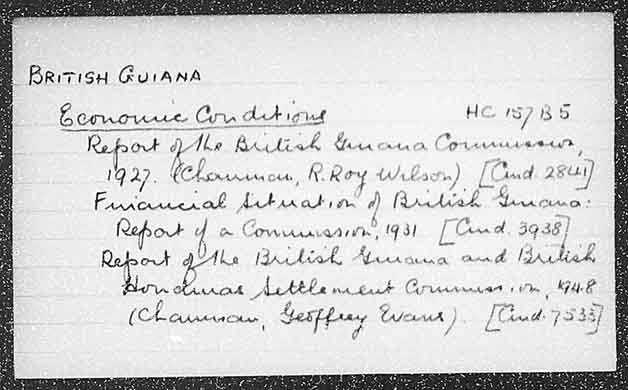 BRITISH GUIANA
Economic Conditions HC 157 B5
Report of the British Guiana Commission,
1927. (Chairman, R. Roy Wilson) [Cmd. 2841]
Financial Situation of British Guiana:
Report of a Commission, 1931 [Cmd. 3938]
Report of the British Guiana and British
Honduras Settlement Commission, 1948
(Chairman, Geoffrey Evans). [Cmd. 7533]